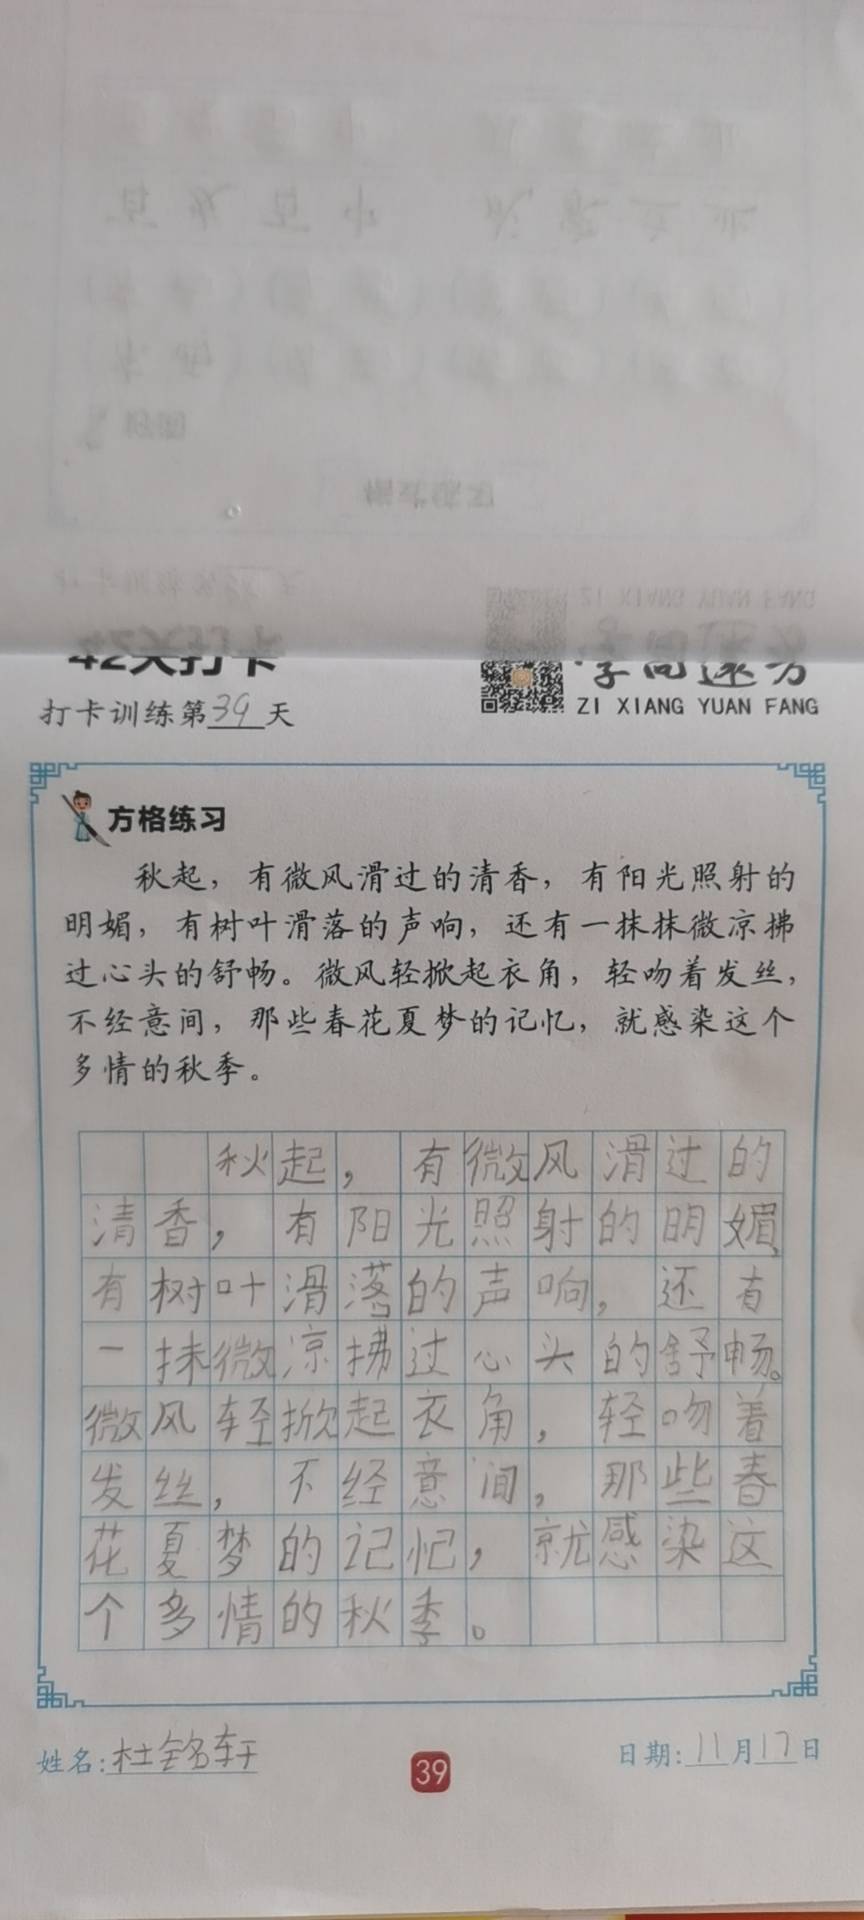 42天打卡
字向远方
打卡训练第39天
ZI XIANG YUAN FANG
方格练习
秋起，有微风滑过的清香，有阳光照射的
明媚，有树叶滑落的声响，还有一抹抹微凉拂
过心头的舒畅。微风轻掀起衣角，轻吻着发丝，
不经意间，那些春花夏梦的记忆，就感染这个
多情的秋季。
秋起，有微风滑过的
清香，有阳光照射的明媚，
有树叶滑落的声响，还有
一抹微凉拂过心头的舒畅。
微风轻掀起衣角，轻吻着
发丝，不经意间，那些春
花夏梦的记忆，就感染这
个多情的秋季。
姓名：杜铭轩
39
日期：11月17日